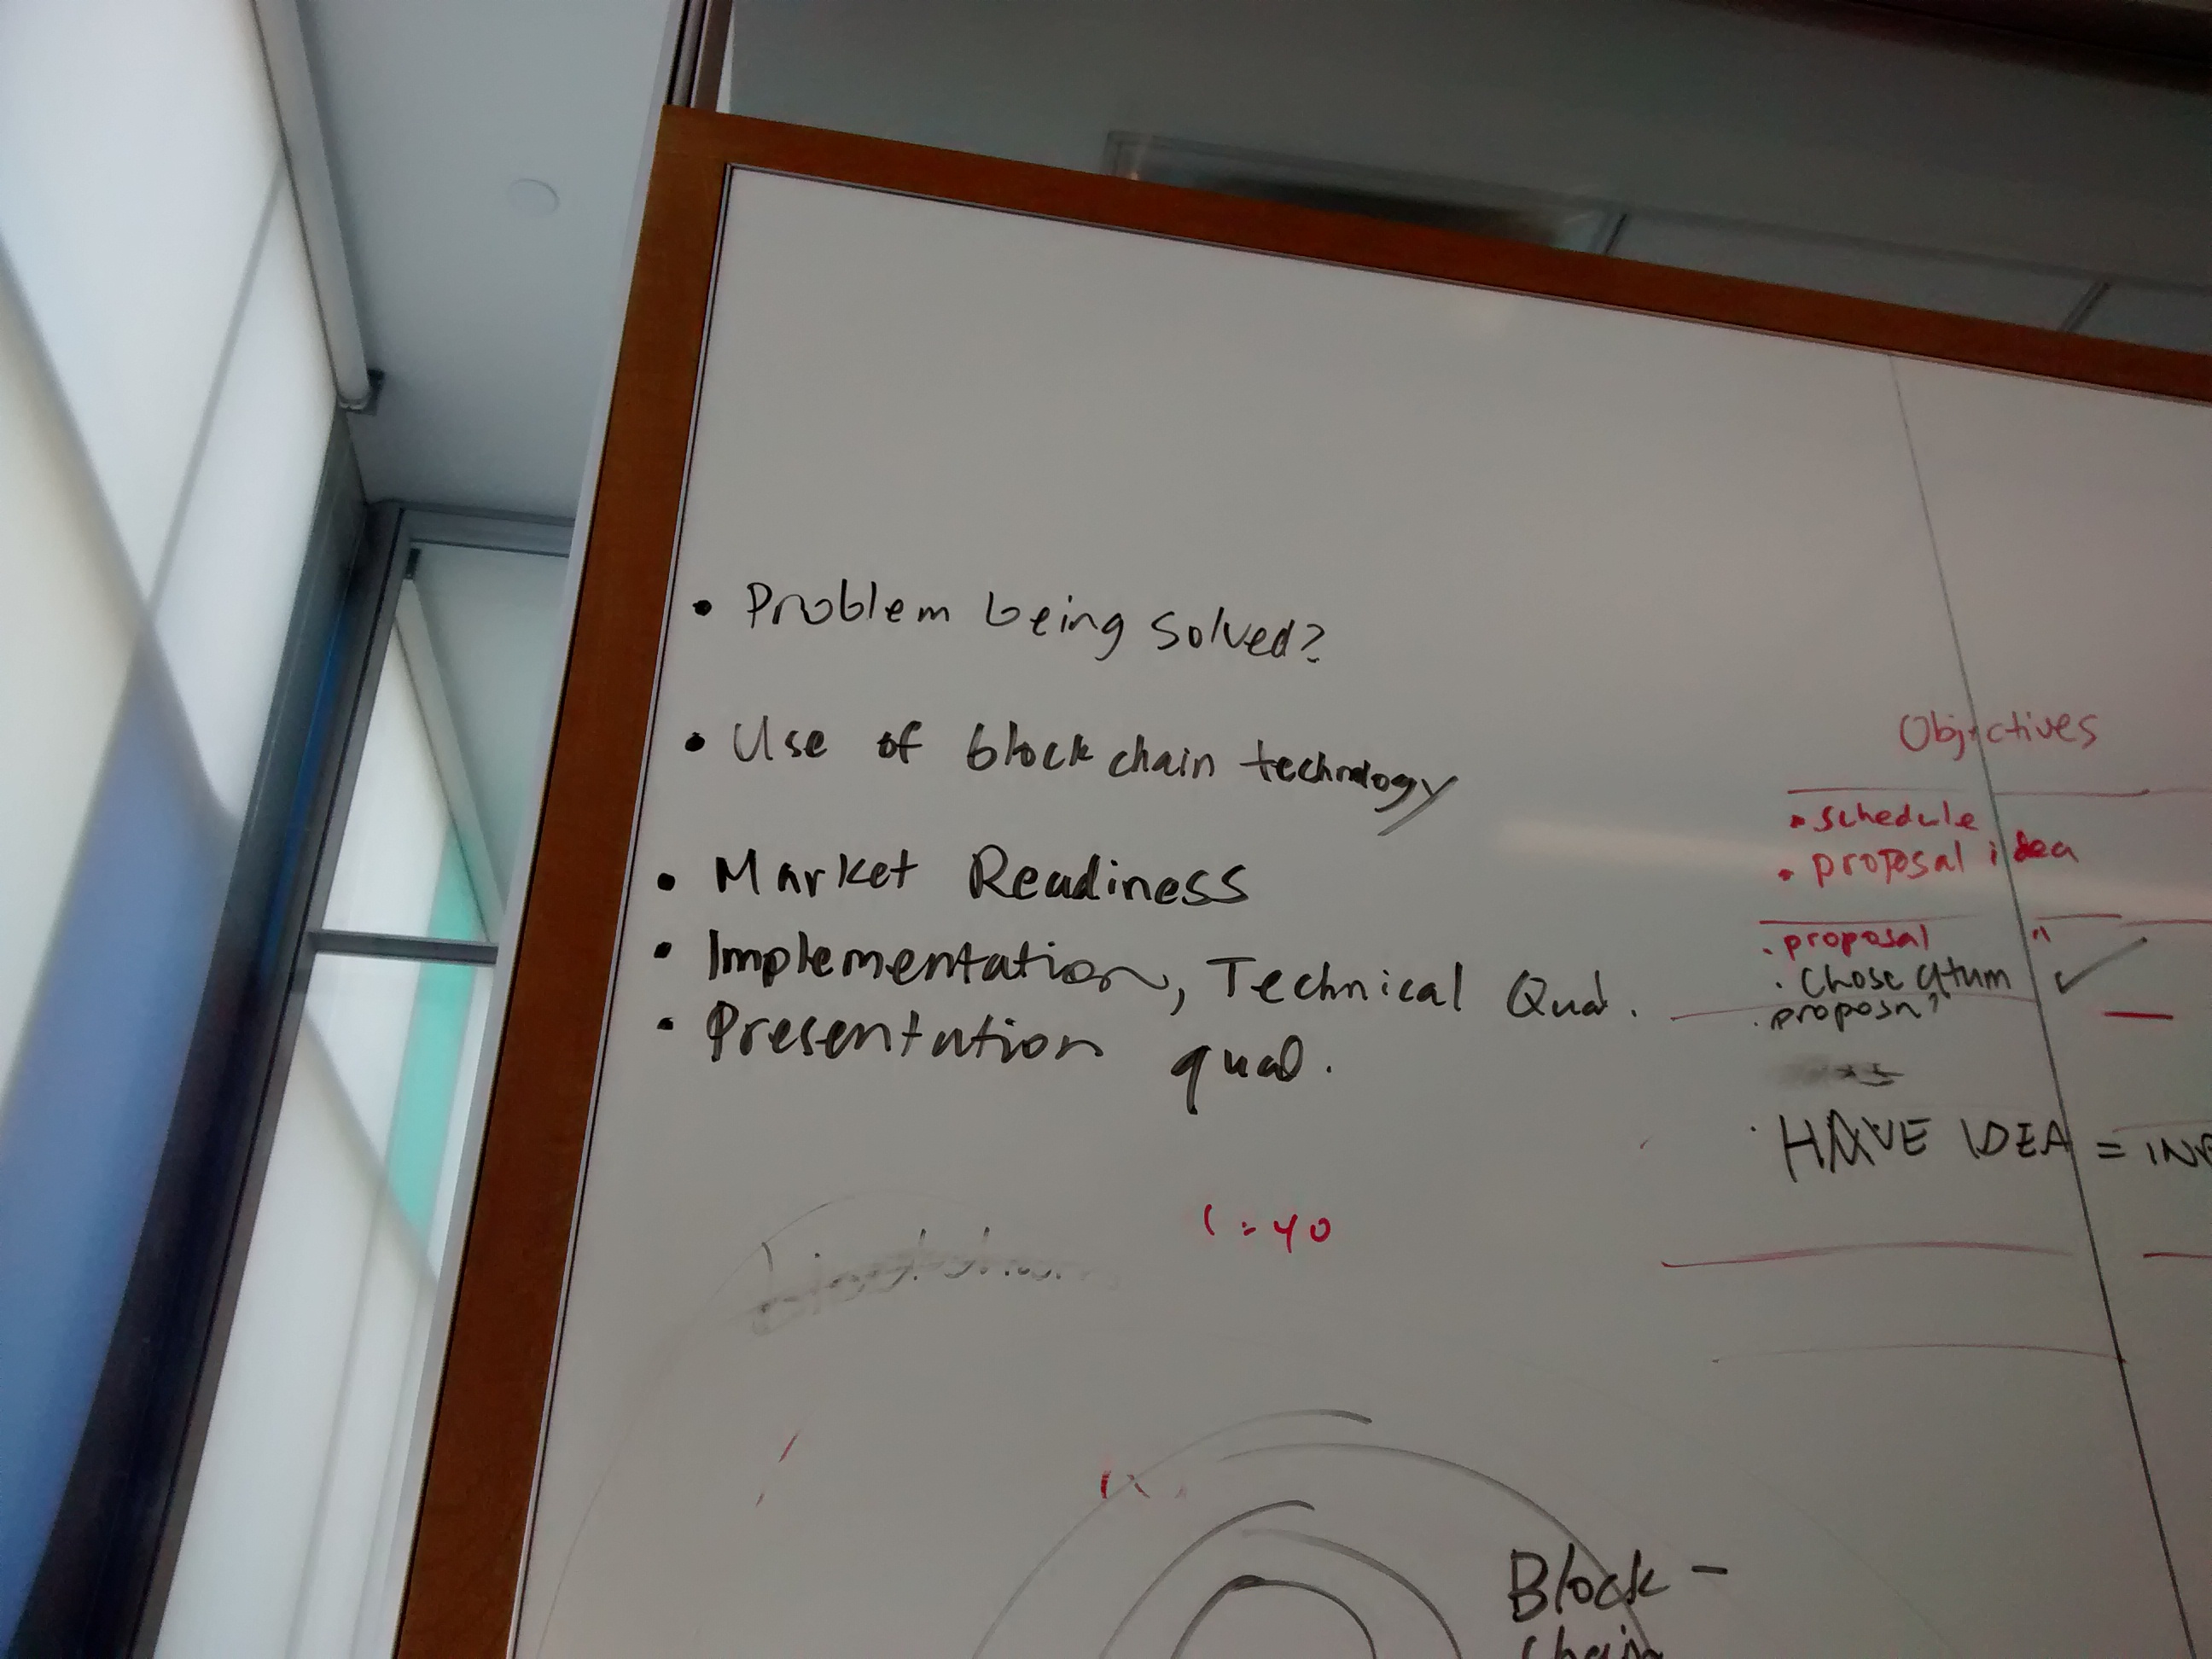 • Problem being solved?
• Use of block chain technology
• Market Readiness
• Implementation, Technical Qual.
• Presentation qual.
1:40
Objectives
• schedule
• proposal idea
• proposal "
• Chose qtum
HAVE IDEA =
Block -
chain